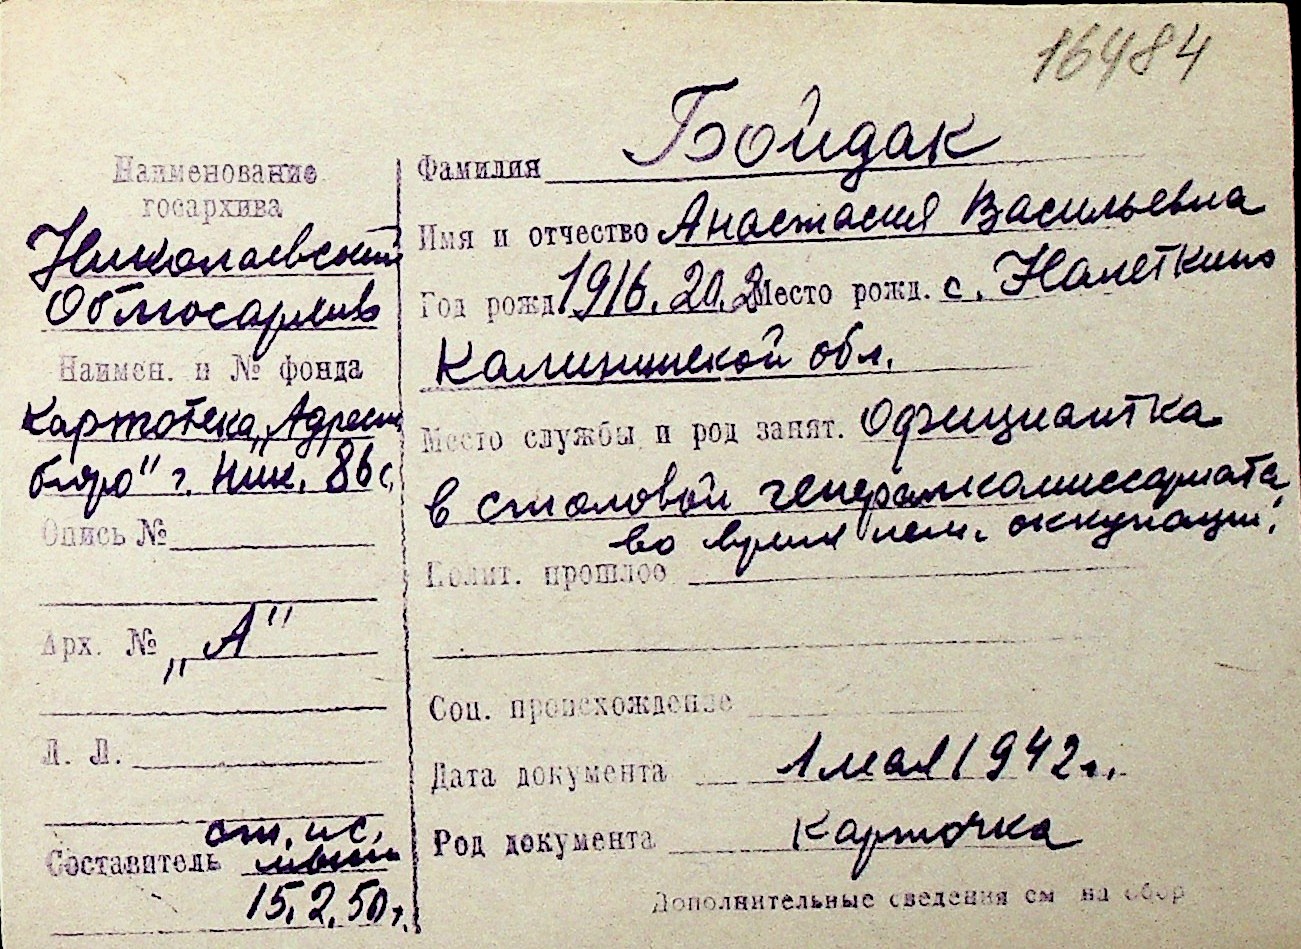 16484
Наименование
госархива
Николаевский
Облгосархив
Наимен. и № фонда
Картотека „Адресн.
бюро" г. Ник. 86 с.
Опись №
Арх. № „А"
Л. Л.
Составитель ст. н. с.
15.2.50 г.
Фамилия Бойдак
Имя и отчество Анастасия Васильевна
Год рожд. 1916.20.2 Место рожд. с.
Калининской обл.
Место службы и род занят. Официантка
в столовой генералкомиссариата
во время нем. оккупации.
Полит. прошлое
Соц. происхождение
Дата документа 1 мая 1942 г.
Род документа Карточка
Дополнительные сведения см на обор